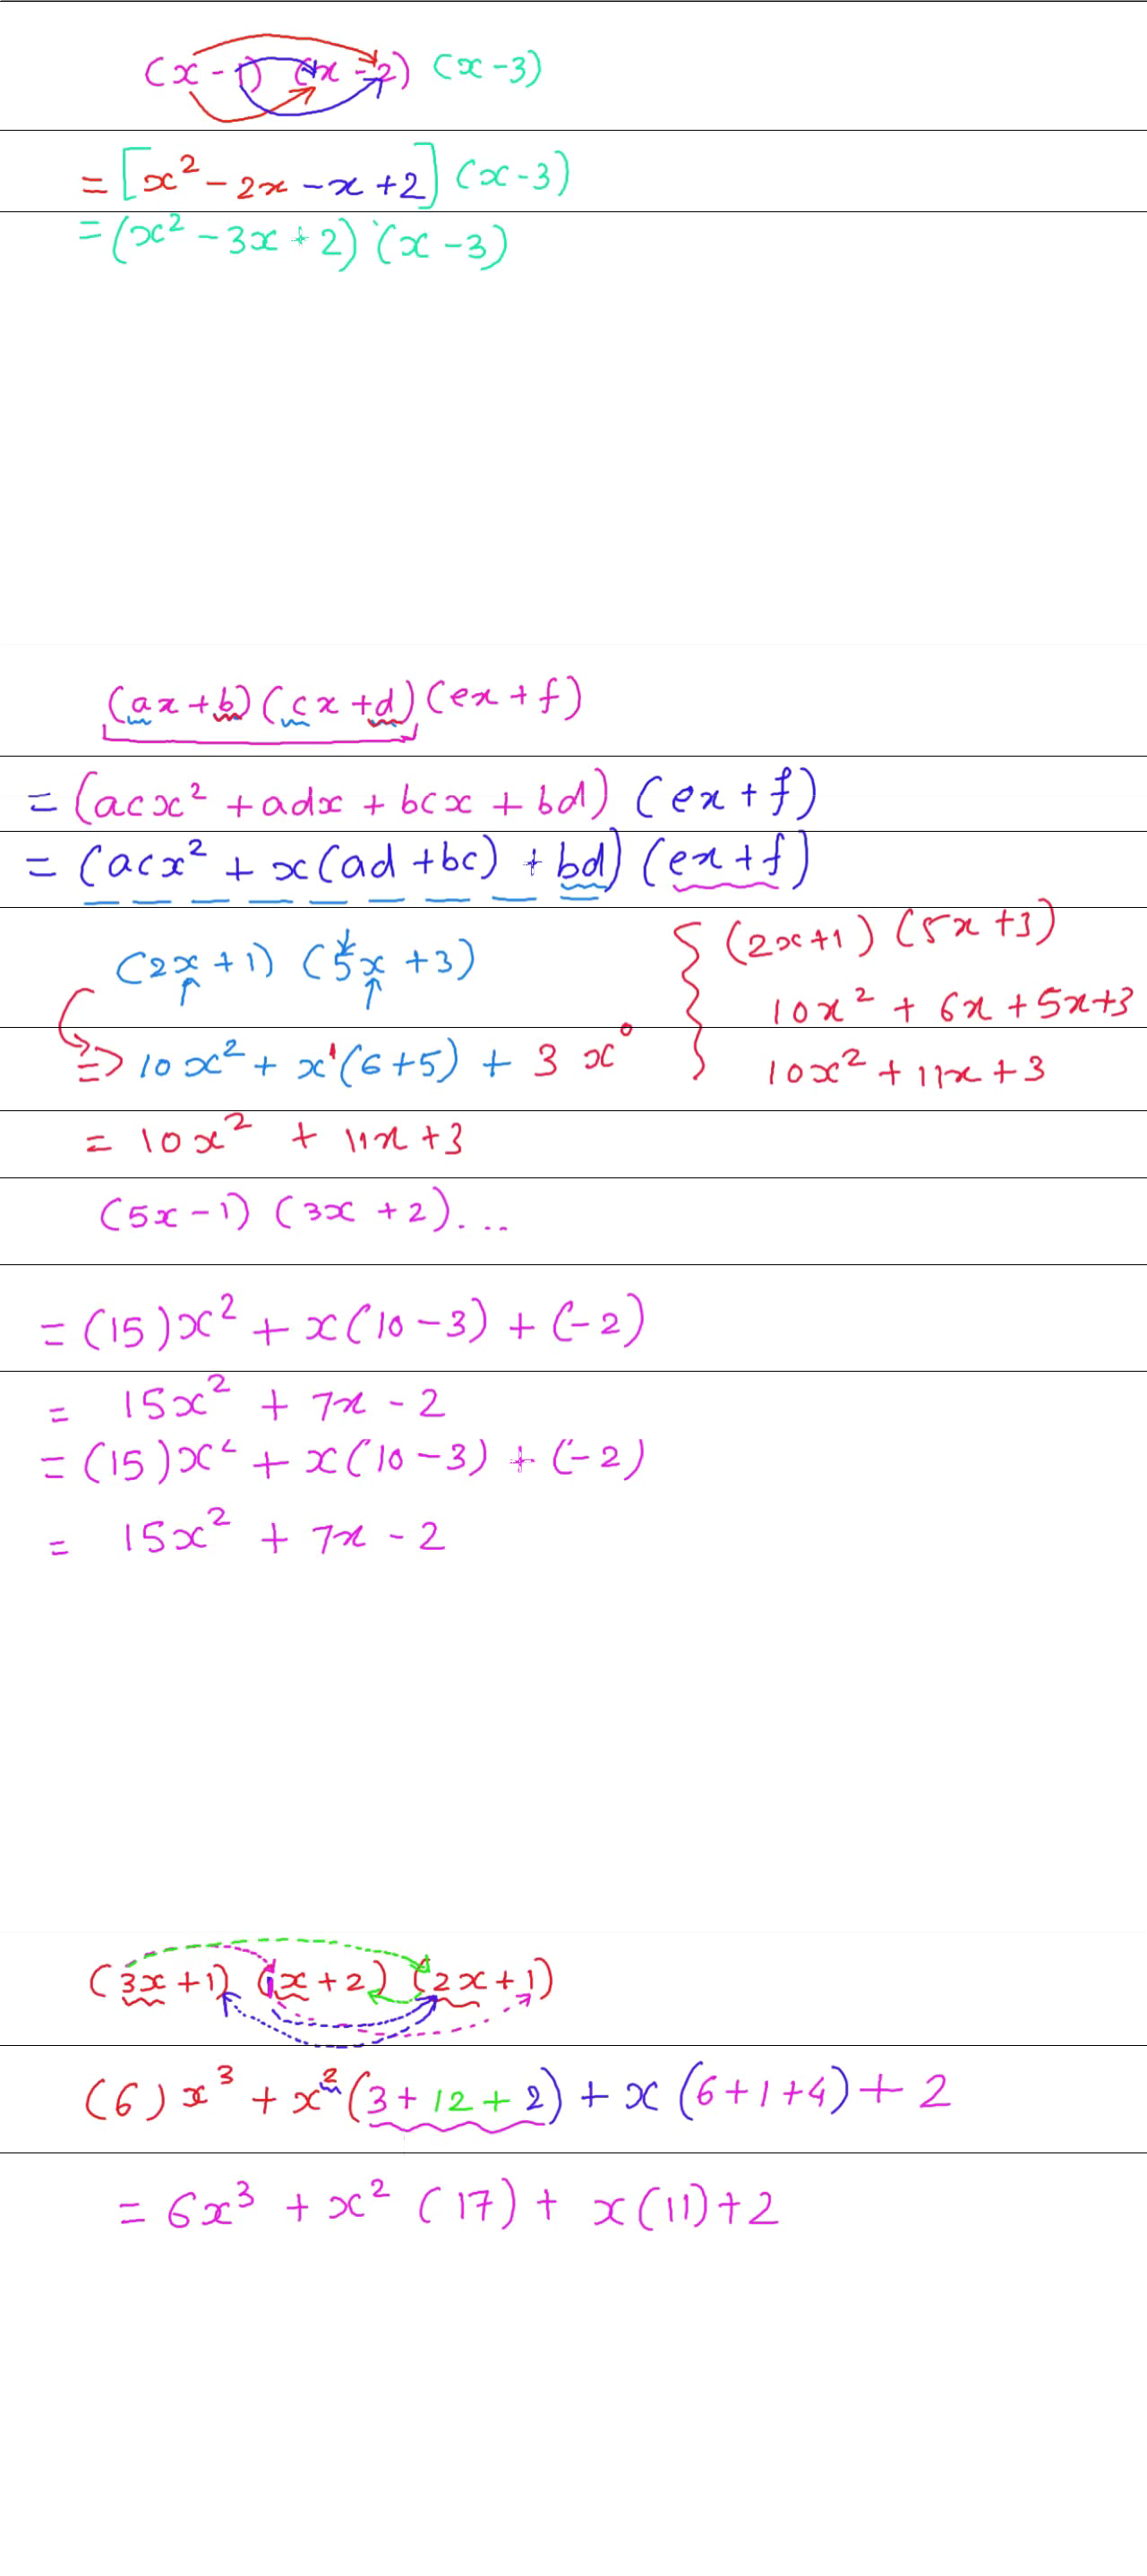 (x - 1) (x - 2) (x - 3)
= [x² - 2x - x + 2] (x - 3)
= (x² - 3x + 2) (x - 3)
(ax + b) (cx + d) (ex + f)
= (acx² + adx + bcx + bd) (ex + f)
= (acx² + x(ad + bc) + bd) (ex + f)
(2x + 1) (5x + 3)
=> 10x² + x¹(6 + 5) + 3 x⁰
= 10x² + 11x + 3
{ (2x + 1) (5x + 3)
10x² + 6x + 5x + 3
10x² + 11x + 3
(5x - 1) (3x + 2)...
= (15)x² + x(10 - 3) + (-2)
= 15x² + 7x - 2
= (15)x² + x(10 - 3) + (-2)
= 15x² + 7x - 2
(3x + 1) (1x + 2) (2x + 1)
(6) x³ + x² (3 + 12 + 2) + x (6 + 1 + 4) + 2
= 6x³ + x² (17) + x(11) + 2